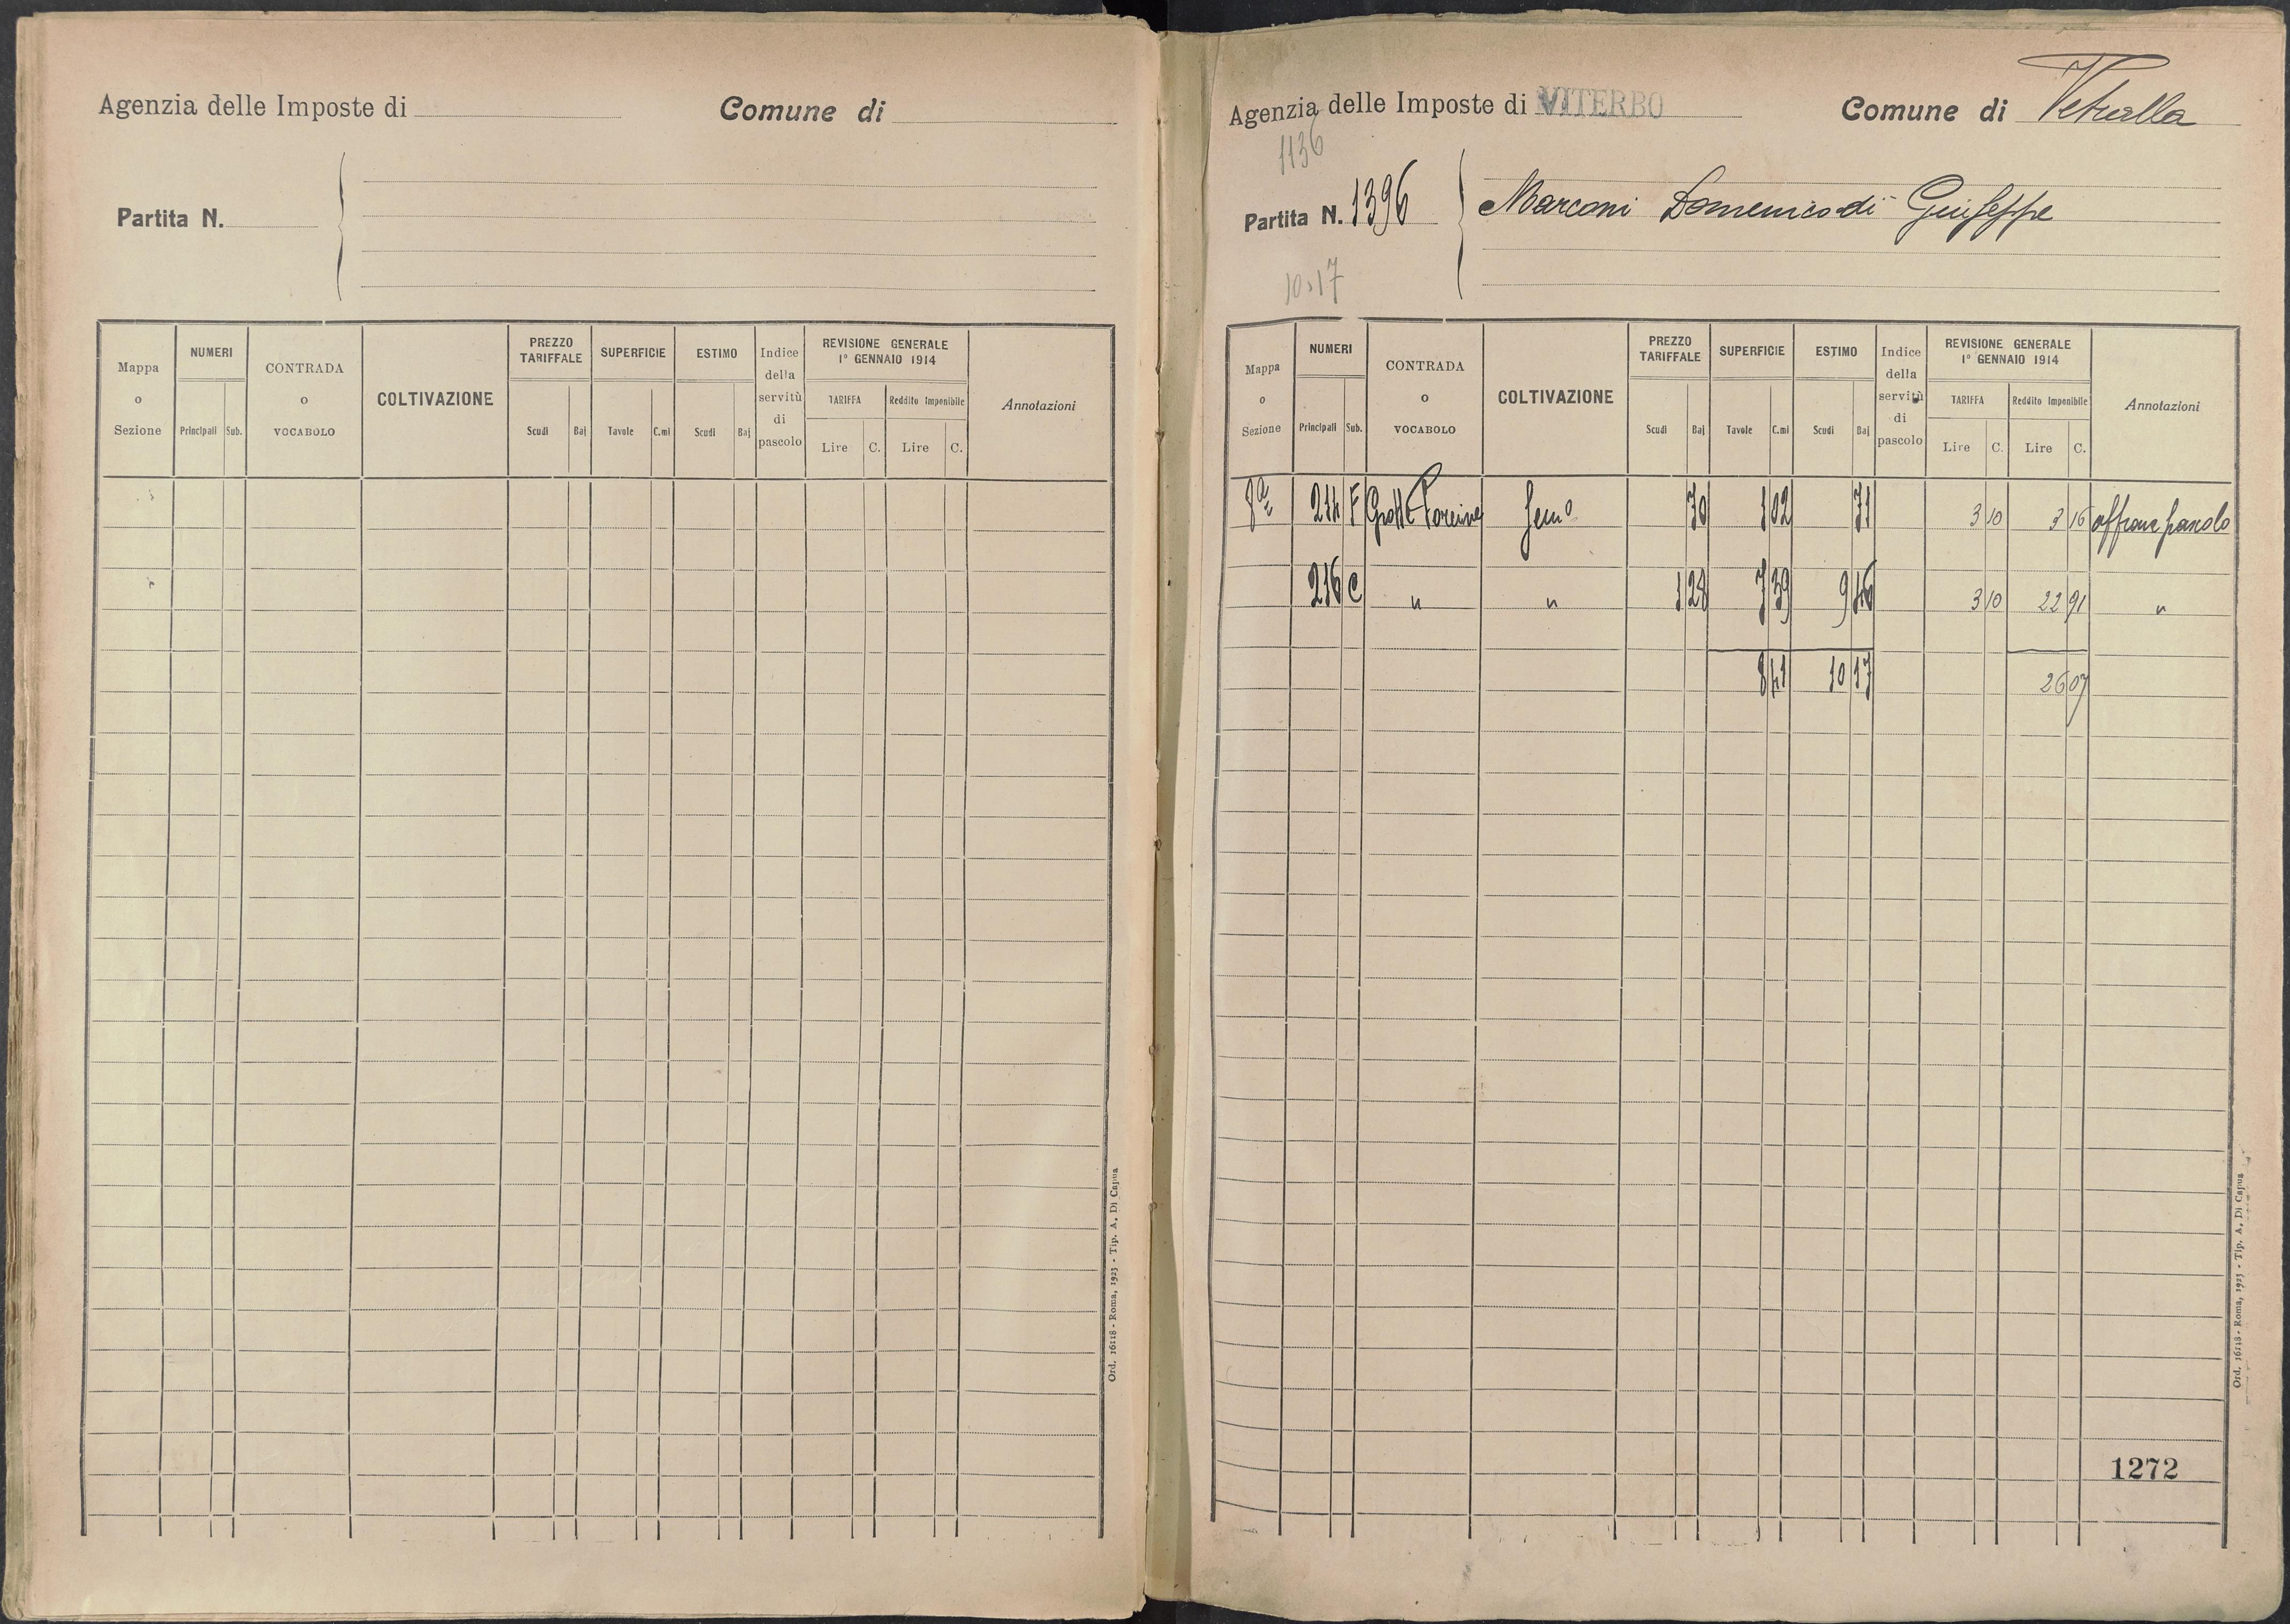 Agenzia delle Imposte di
Comune di
Partita N.
Mappa o Sezione
NUMERI
Principali Sub.
CONTRADA o VOCABOLO
COLTIVAZIONE
PREZZO TARIFFALE
Scudi Baj
SUPERFICIE
Tavole C.mi
ESTIMO
Scudi Baj
Indice della servitù di pascolo
REVISIONE GENERALE
1º GENNAIO 1914
TARIFFA Reddito Imponibile
Lire C. Lire C.
Annotazioni
Ord. 16118 - Roma, 1923 - Tip. A. Di Capua
Agenzia delle Imposte di VITERBO
Comune di Vetralla
1136
Partita N. 1396
Marconi Domenico di Giuseppe
10.17
Mappa o Sezione
NUMERI
Principali Sub.
CONTRADA o VOCABOLO
COLTIVAZIONE
PREZZO TARIFFALE
Scudi Baj
SUPERFICIE
Tavole C.mi
ESTIMO
Scudi Baj
Indice della servitù di pascolo
REVISIONE GENERALE
1º GENNAIO 1914
TARIFFA Reddito Imponibile
Lire C. Lire C.
Annotazioni
8ª 214 F Grotte Porcine Semo 70 1 02 71 3 10 3 16 affranc pascolo
216 C " " 1 28 7 39 9 46 3 10 22 91 "
8 41 10 17 26 07
1272
Ord. 16118 - Roma, 1923 - Tip. A. Di Capua